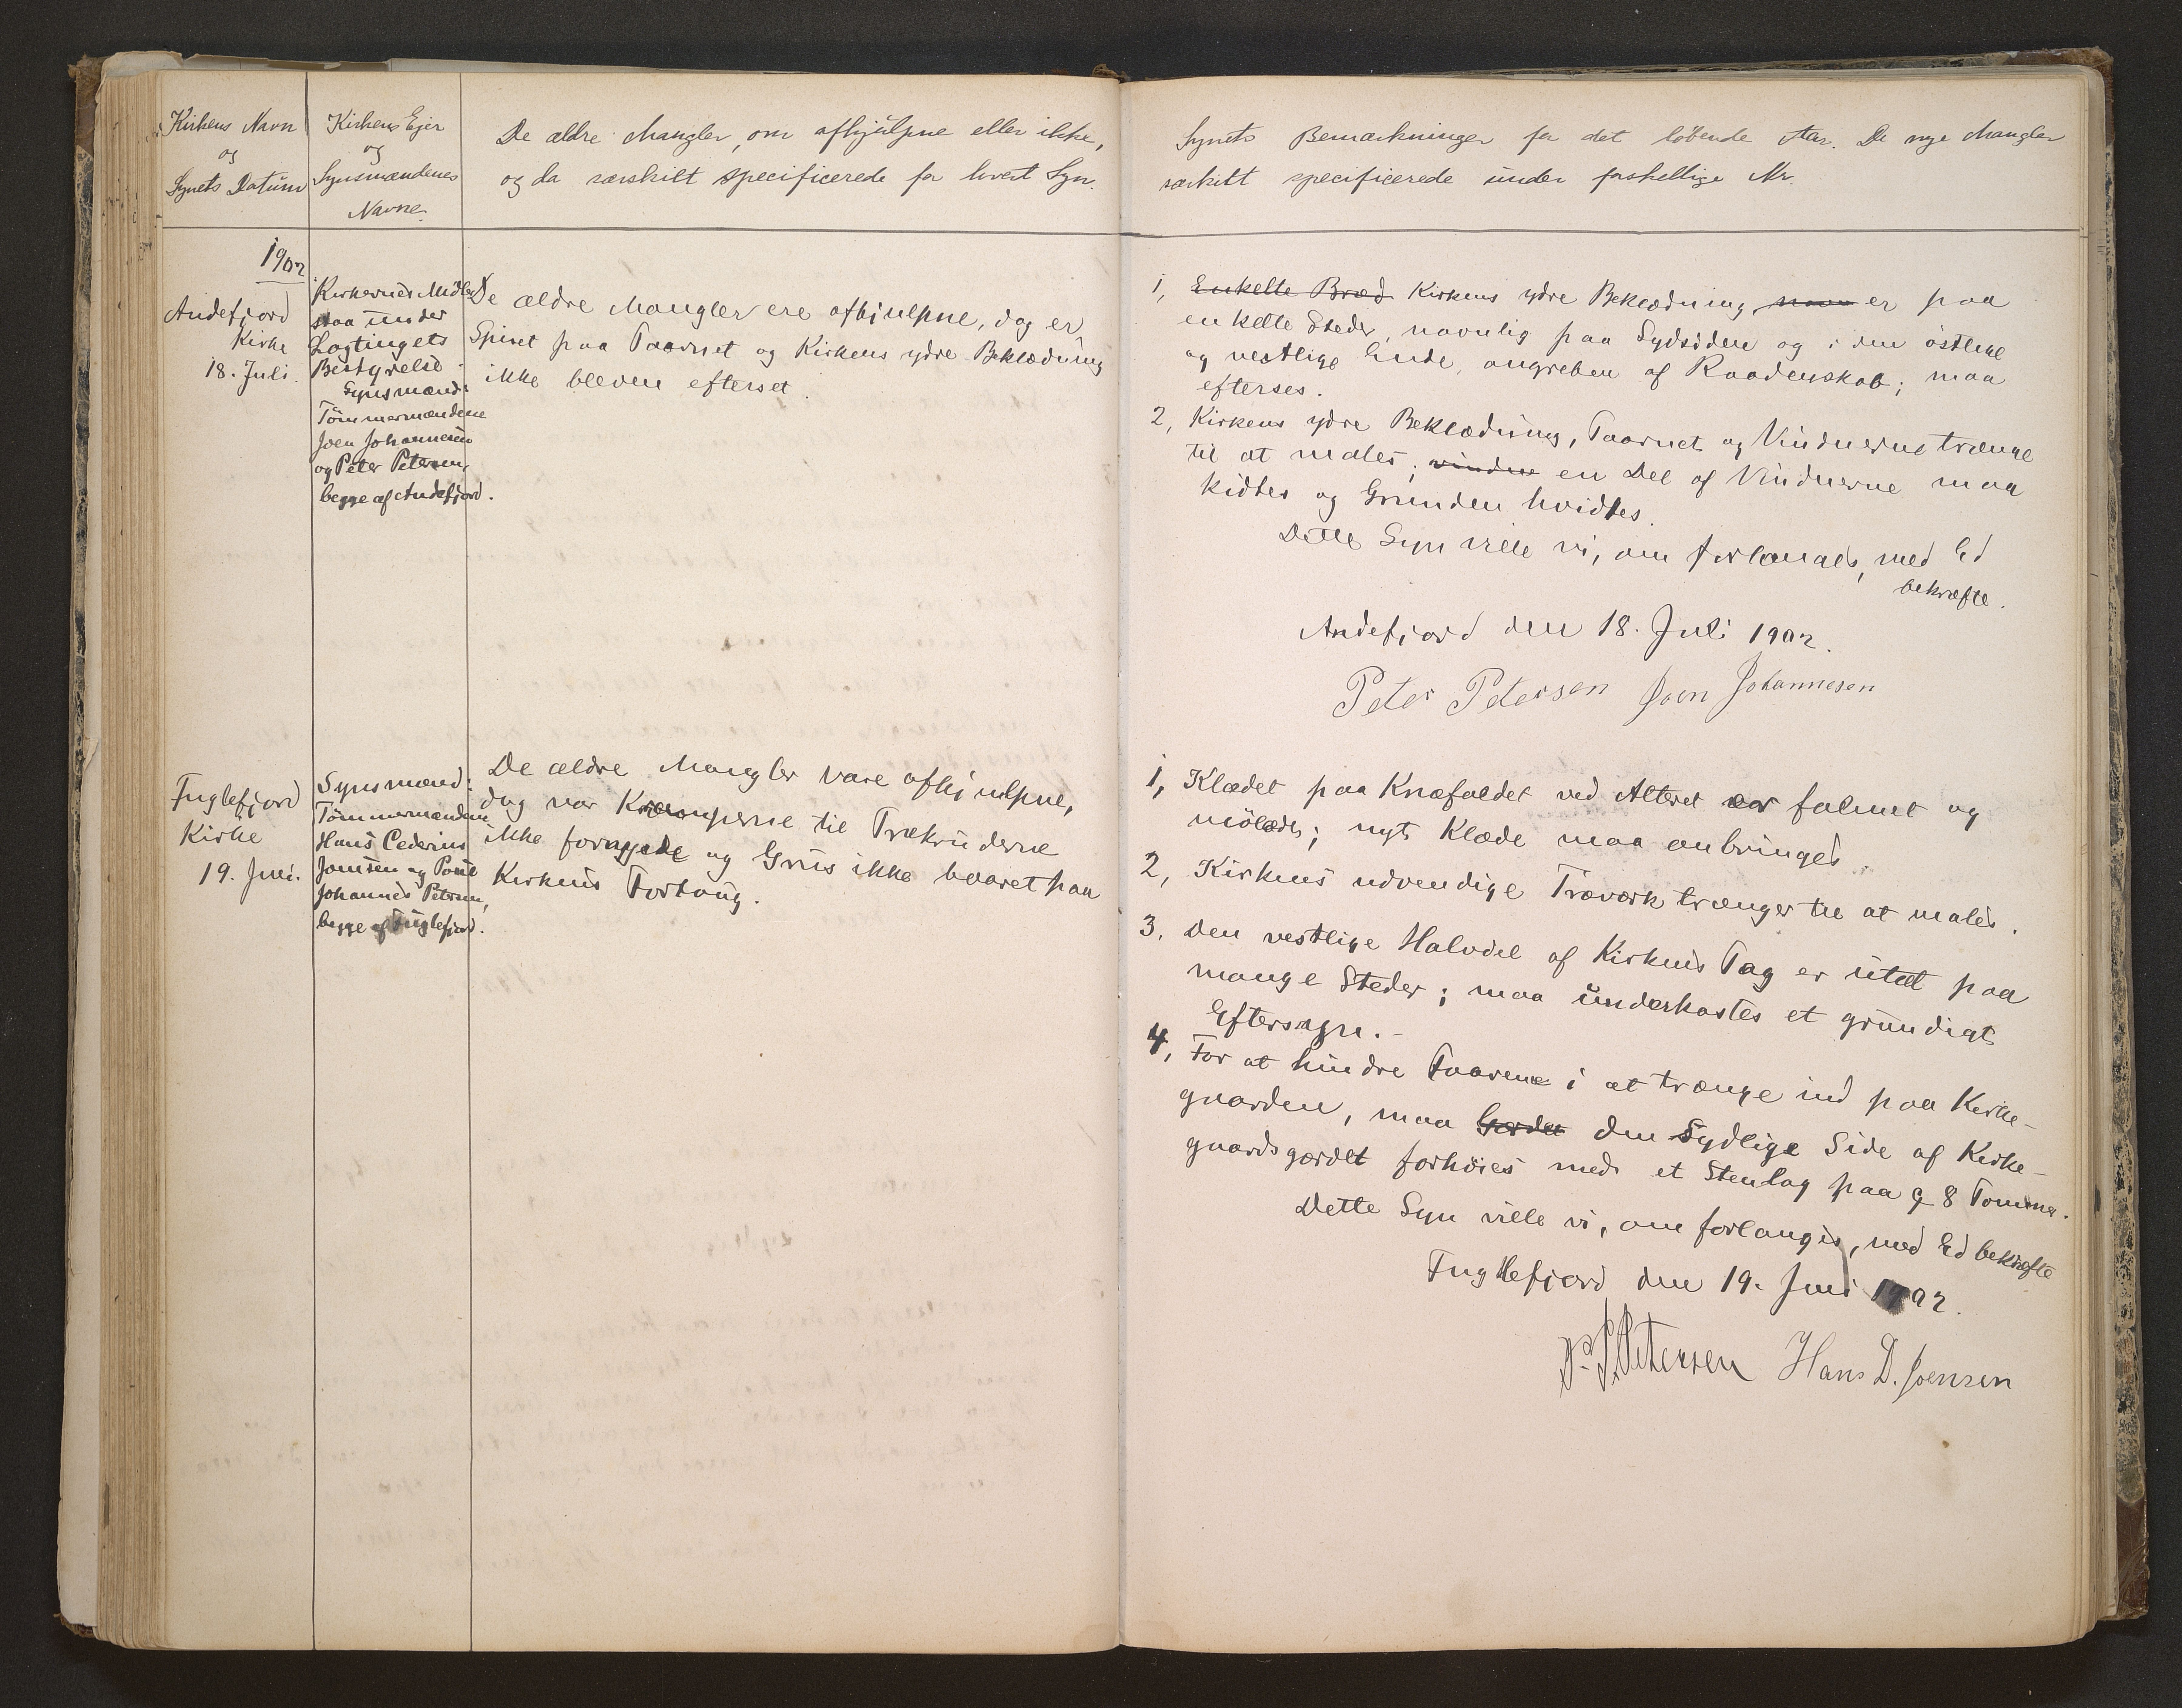 Kirkens Navn
og
Synets Datum
Kirkens Ejer
og
Synsmændenes
Navne.
De ældre Mangler, om afhjulpne eller ikke,
og da særskilt specificerede for hvert Syn.
1902
Andefjord
Kirke
18. Juli.
Kirkernes Midler
staa under
Lagtingets
Bestyrelse
Synsmænd:
Tömmermændene
Joen Johannesen
og Peter Petersen,
begge af Andefjord.
De ældre Mangler ere afhjulpne, dog er
Spiret paa Taarnet og Kirkens ydre Beklædning
ikke bleven efterset.
Fuglefjord
Kirke
19. Juni.
Synsmænd:
Tömmermændene
Hans
Joensen og Poul
Johannes Petersen,
begge af Fuglefjord.
De ældre Mangler vare afhjulpne,
dog var Kramperne til Trækruderne
ikke fornyede og Grus ikke baaret paa
Kirkens Fortoug.
Synets Bemærkninger for det löbende Aar. De nye Mangler
særskilt specificerede under forskellige Nr.
1, Enkelte Bræd Kirkens ydre Beklædning er paa
enkelte Steder, navnlig paa Sydsiden og i den östlige
og vestlige Ende, angreben af Raaddenskab; maa
efterses.
2, Kirkens ydre Beklædning, Taarnet og Vinduerne trænge
til at males; vindue en Del af Vinduerne maa
kidtes og Grunden hvidtes.
Dette Syn ville vi, om forlanges, med Ed
bekræfte.
Andefjord den 18. Juli 1902.
Peter Petersen Joen Johannesen
1, Klædet paa Knæfaldet ved Alteret er falmet og
mölædt; nyt Klæde maa anbringes.
2, Kirkens udvendige Træværk trænger til at males.
3. Den vestlige Halvdel af Kirkens Tag er utæt paa
mange Steder; maa underkastes et grundigt
Eftersyn.-
4, For at hindre Faarene i at trænge ind paa Kirke-
gaarden, maa Gærdet den Sydlige Side af Kirke-
gaardsgærdet forhöies med et Stenlag paa 8 Tommer.
Dette Syn ville vi, om forlanges, med Ed bekræfte
Fuglefjord den 19. Juni 1902.
Petersen Hans D. Joensen